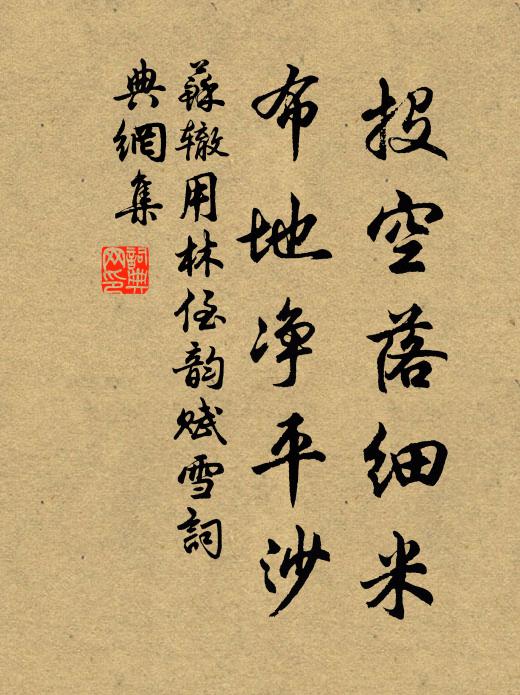 投空落细米
布地净平沙
蘇辙用林侄韵赋雪詞
典網集
詞典网印